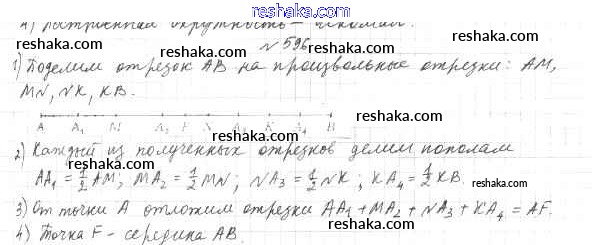 4) Построенная окружность – искомая.
reshaka.com
reshaka.com
№ 596
reshaka.com
1) Поделим отрезок AB на произвольные отрезки: AM,
MN, NK, KB.
reshaka.com
reshaka.com
A A₁ M F K B
2) Каждый из полученных отрезков делим пополам
reshaka.com
AA₁ = 1/2 AM; MA₂ = 1/2 MN; NA₃ = 1/2 NK; KA₄ = 1/2 KB.
reshaka.com
3) От точки A отложим отрезки AA₁ + MA₂ + NA₃ + KA₄ = AF.
4) Точка F – середина AB.
reshaka.com
reshaka.com